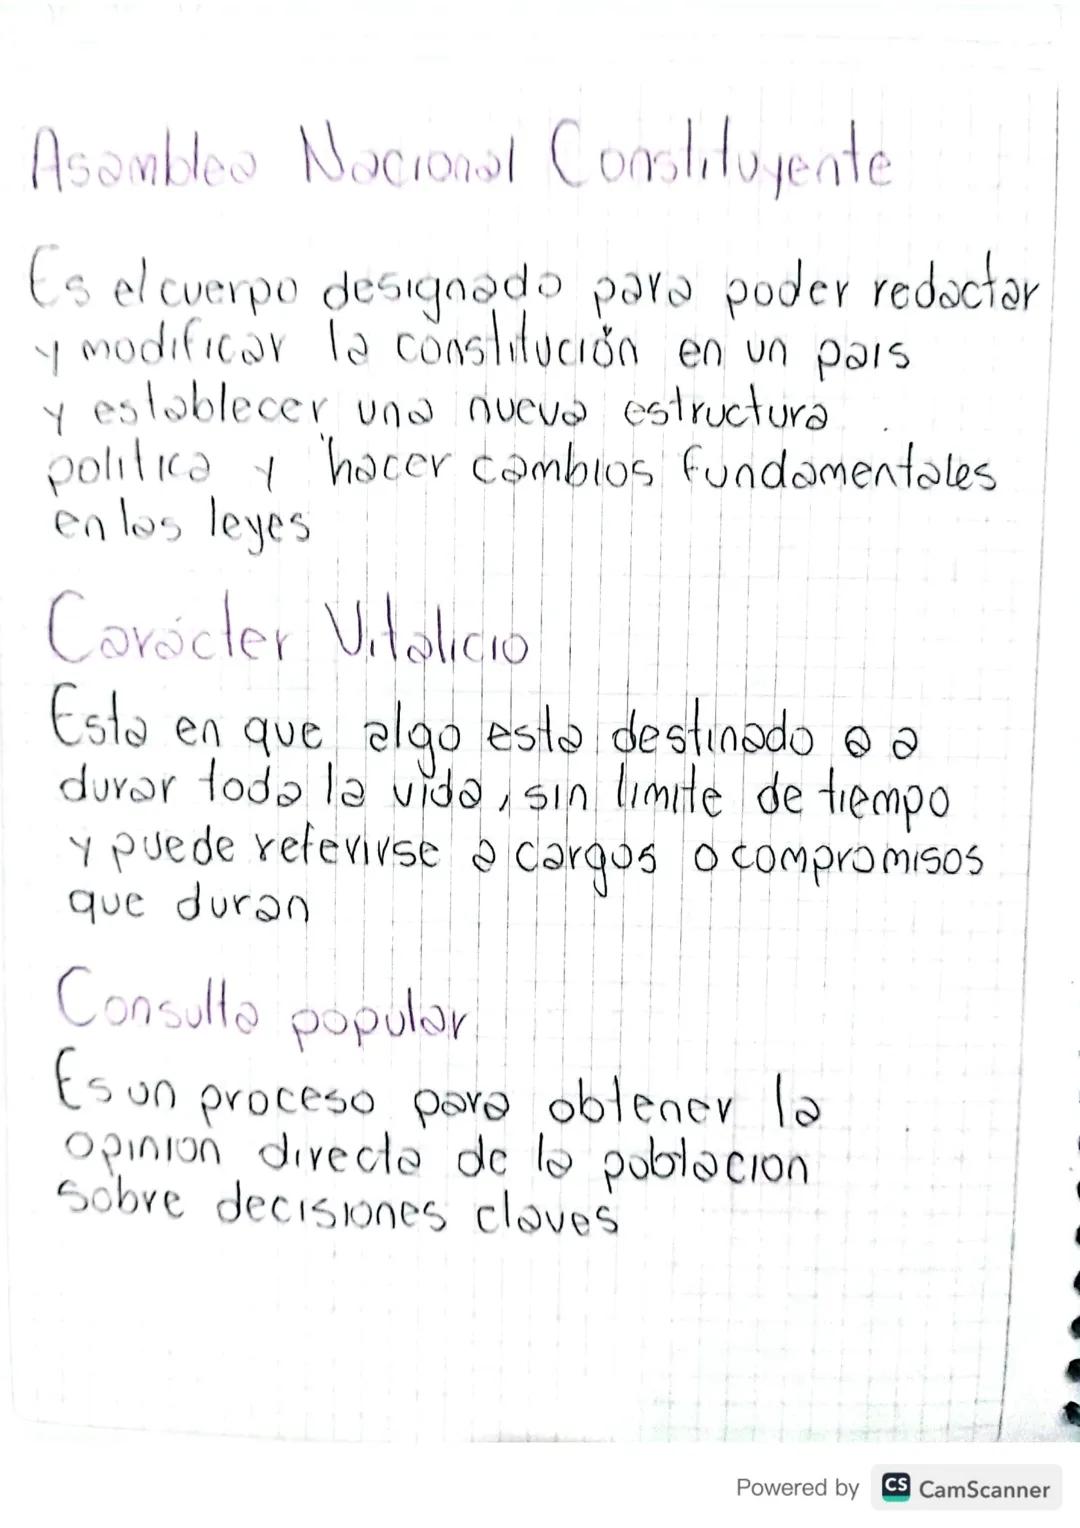 Asamblea Nacional Constituyente
Es el cuerpo designado para poder redactar
y modificar la constitución en un pais
y establecer una nueva estructura
politica y hacer cambios fundamentales
en las leyes
Carácter Vitalicio
Esta en que algo esta destinado a a
durar toda la vida, sin limite de tiempo
y puede referirse a cargos o compromisos
que duran
Consulta popular
Es un proceso para obtener la
opinion directa de la poblacion
sobre decisiones claves
Powered by CS CamScanner